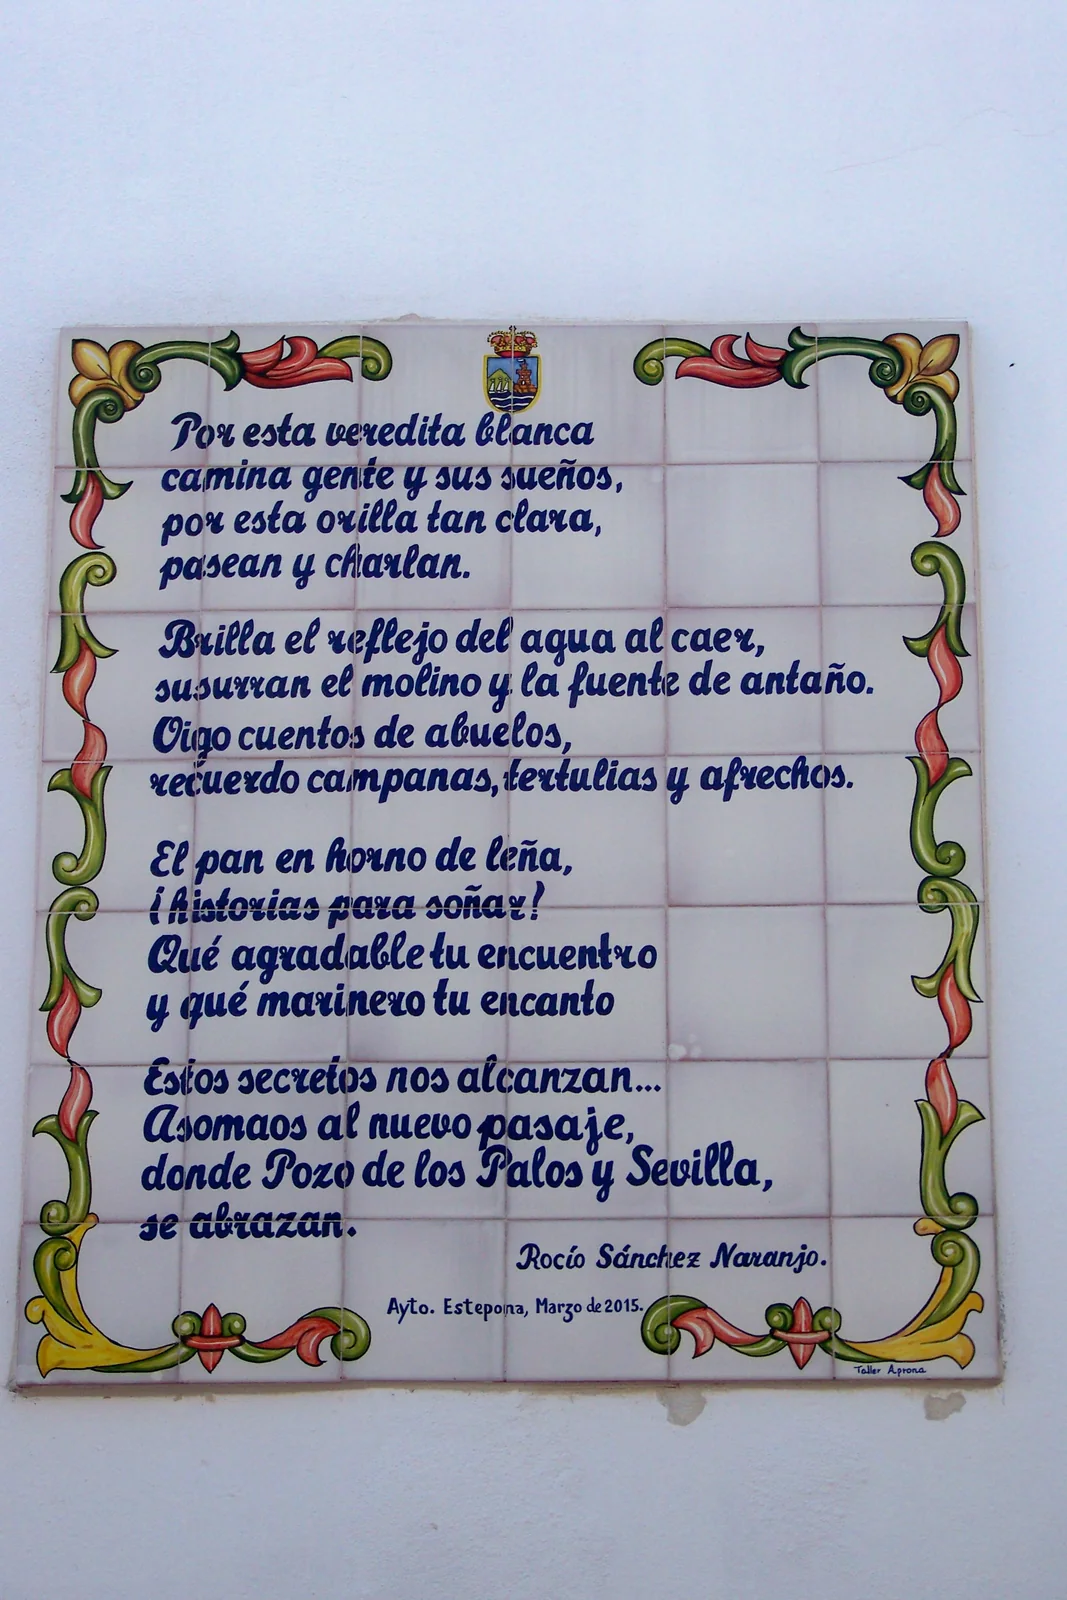 Por esta veredita blanca
camina gente y sus sueños,
por esta orilla tan clara,
pasean y charlan.
Brilla el reflejo del agua al caer,
susurran el molino y la fuente de antaño.
Oigo cuentos de abuelos,
recuerdo campanas, tertulias y afrechos.
El pan en horno de leña,
¡historias para soñar!
Qué agradable tu encuentro
y qué marinero tu encanto
Estos secretos nos alcanzan...
Asomaos al nuevo pasaje,
donde Pozo de los Palos y Sevilla,
se abrazan.
Rocío Sánchez Naranjo.
Ayto. Estepona, Marzo de 2015.
Taller Aprona